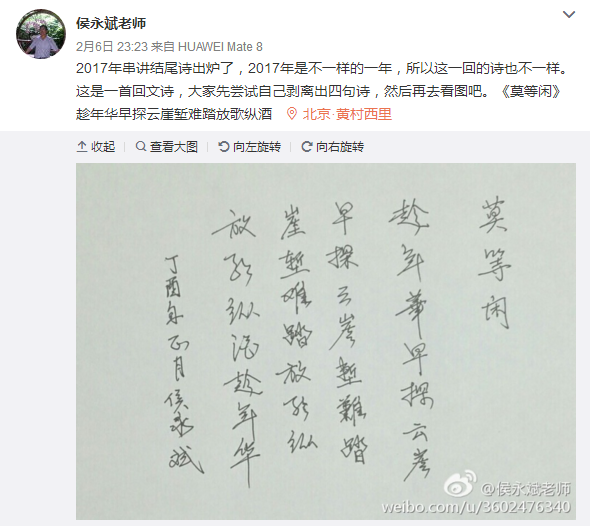 侯永斌老师
2月6日 23:23 来自 HUAWEI Mate 8
2017年串讲结尾诗出炉了，2017年是不一样的一年，所以这一回的诗也不一样。
这是一首回文诗，大家先尝试自己剥离出四句诗，然后再去看图吧。《莫等闲》
趁年华早探云崖堑难踏放歌纵酒 北京·黄村西里
收起 查看大图 向左旋转 向右旋转
莫等闲
趁年華早探云崖
早探云崖堑難踏
崖堑难踏放歌纵
放歌纵酒趁年华
丁酉年正月侯永斌
@侯永斌老师
weibo.com/u/3602476340